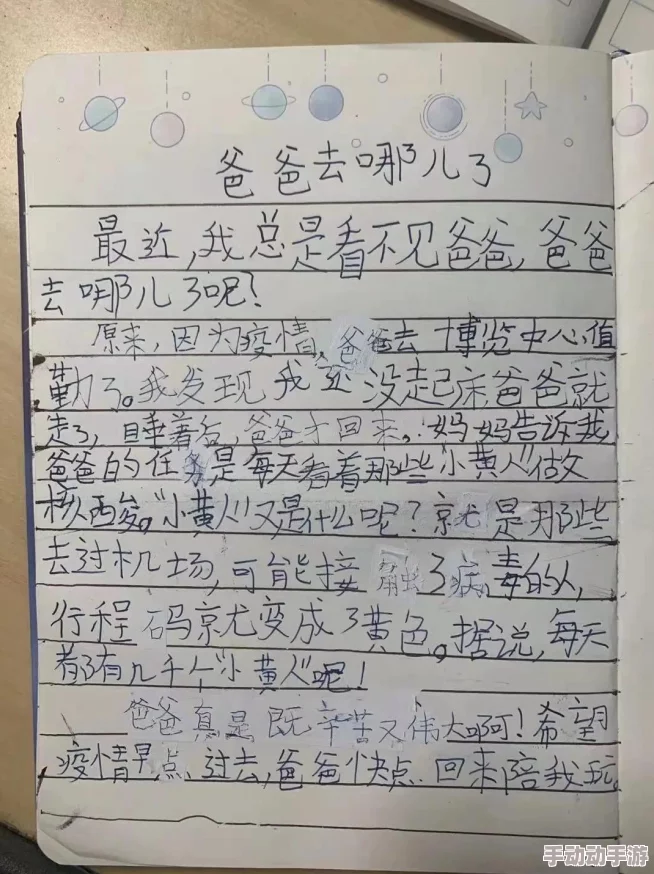 爸爸去哪儿了
最近,我总是看不见爸爸,爸爸
去哪儿了呢?
原来,因为疫情,爸爸去博览中心值
勤了。我发现我还没起床爸爸就
走了,睡着后,爸爸才回来。妈妈告诉我
爸爸的任务是每天看着那些"小黄人"做
核酸。"小黄人"又是什么呢?就是那些
去过机场,可能接触了病毒的人,
行程码就变成了黄色。据说,每天
都有几千个"小黄人"呢!
爸爸真是既辛苦又伟大啊!希望
疫情早点过去,爸爸快点回来陪我玩。
手动动手游